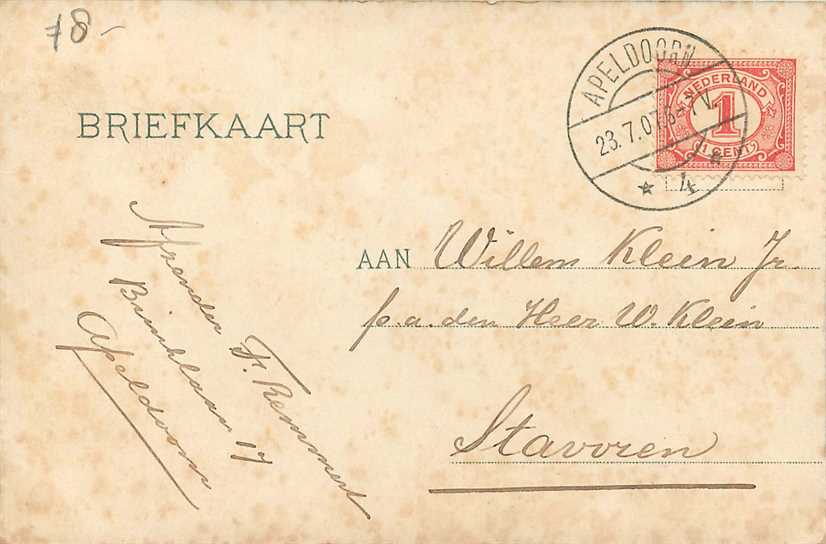 78-
BRIEFKAART
APELDOORN
23.7.07.6-7V
4
NEDERLAND
1
1 CENT
AAN Willem Klein Jr.
p.a. den Heer W. Klein
Stavoren
Afzender F. Remmert
Brinklaan 17
Apeldoorn